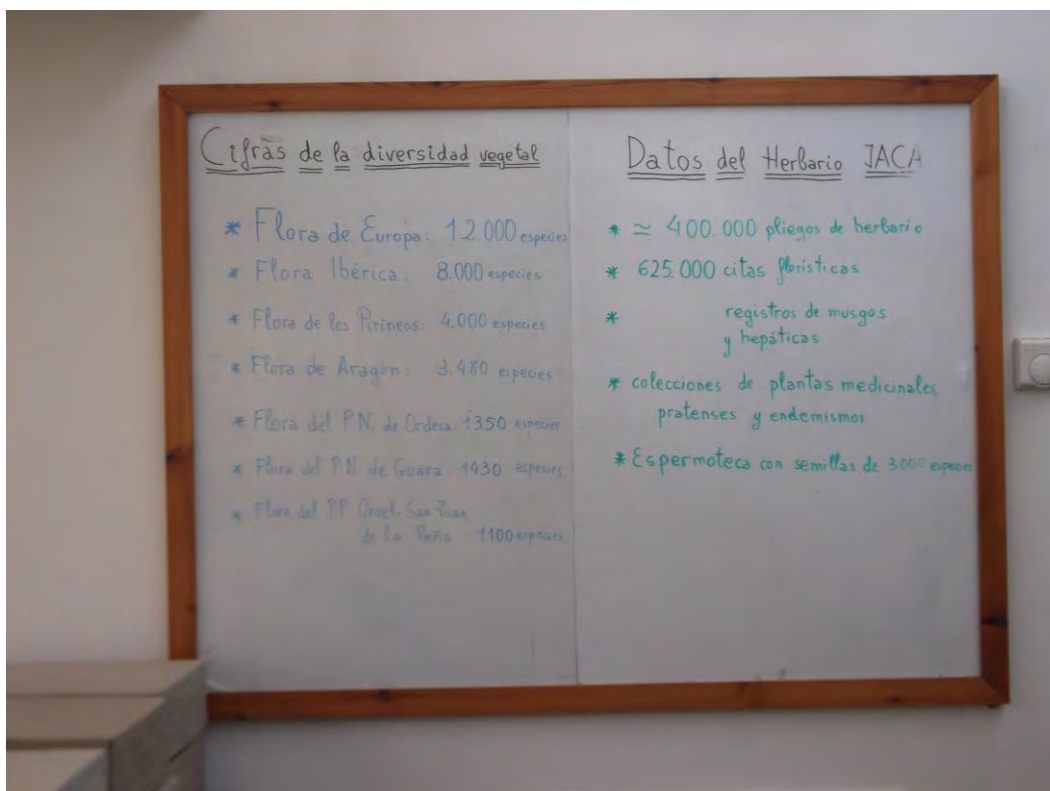 Cifras de la diversidad vegetal
* Flora de Europa: 12.000 especies
* Flora Ibérica: 8.000 especies
* Flora de los Pirineos: 4.000 especies
* Flora de Aragón: 3.480 especies
* Flora del P.N. de Ordesa: 1350 especies
* Flora del P.N. de Guara: 1430 especies
* Flora del P.P. Oroel-San Juan
de la Peña: 1100 especies
Datos del Herbario JACA
* ≃ 400.000 pliegos de herbario
* 625.000 citas florísticas
* registros de musgos
y hepáticas
* colecciones de plantas medicinales,
pratenses y endemismos
* Espermoteca con semillas de 3.000 especies